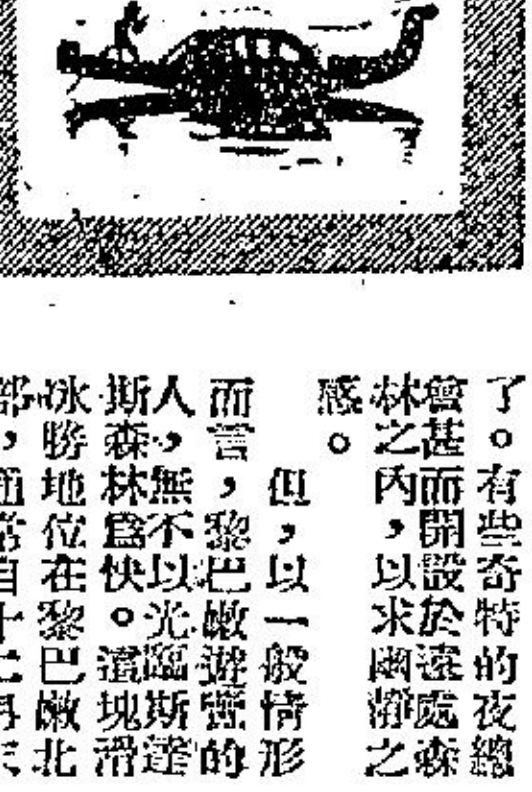 了。有些奇特的夜總
會甚而開設於遠處森
林之內,以求幽靜之
感。
但,以一般情形
而言,黎巴嫩遊覽的
人,無不以光臨斯達
斯森林爲快。這塊滑
冰勝地位在黎巴嫩北
部,通常自十二